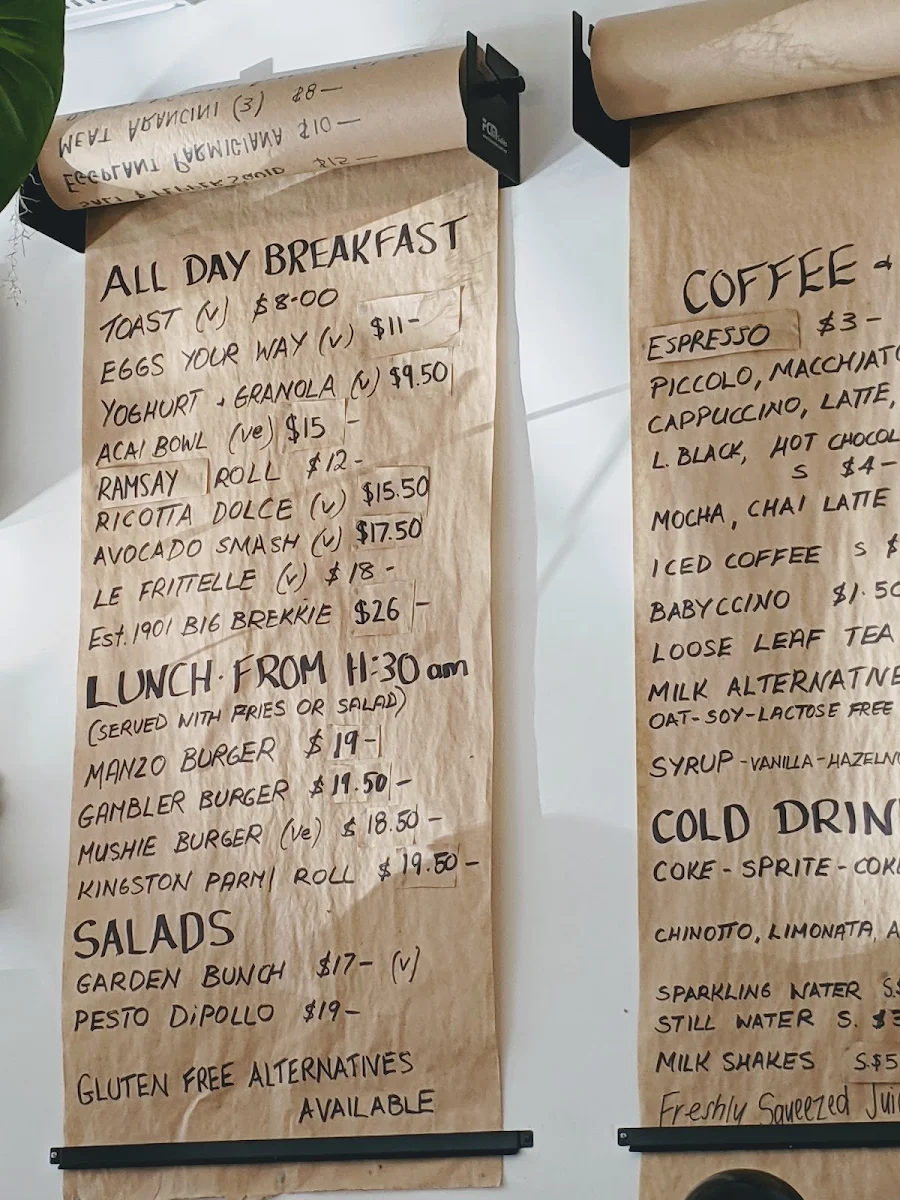 MEAT ARANCINI (3) $8—
EGGPLANT PARMIGIANA $10—
ALL DAY BREAKFAST
TOAST (v) $8.00
EGGS YOUR WAY (v) $11-
YOGHURT + GRANOLA (v) $9.50
ACAI BOWL (ve) $15 -
RAMSAY ROLL $12-
RICOTTA DOLCE (v) $15.50
AVOCADO SMASH (v) $17.50
LE FRITTELLE (v) $18-
Est. 1901 BIG BREKKIE $26 -
LUNCH FROM 11:30 am
(SERVED WITH FRIES OR SALAD)
MANZO BURGER $19-
GAMBLER BURGER $19.50 -
MUSHIE BURGER (ve) $18.50 -
KINGSTON PARMI ROLL $19.50 -
SALADS
GARDEN BUNCH $17- (v)
PESTO DiPOLLO $19-
GLUTEN FREE ALTERNATIVES
AVAILABLE
COFFEE +
ESPRESSO $3-
PICCOLO, MACCHIATO
CAPPUCCINO, LATTE,
L. BLACK, HOT CHOCOL
S $4-
MOCHA, CHAI LATTE
ICED COFFEE S $
BABYCCINO $1.50
LOOSE LEAF TEA
MILK ALTERNATIVE
OAT-SOY-LACTOSE FREE
SYRUP -VANILLA-HAZELNU
COLD DRIN
COKE - SPRITE - COKE
CHINOTTO, LIMONATA, A
SPARKLING WATER S.$
STILL WATER S. $3
MILK SHAKES S.$5
Freshly Squeezed Juic